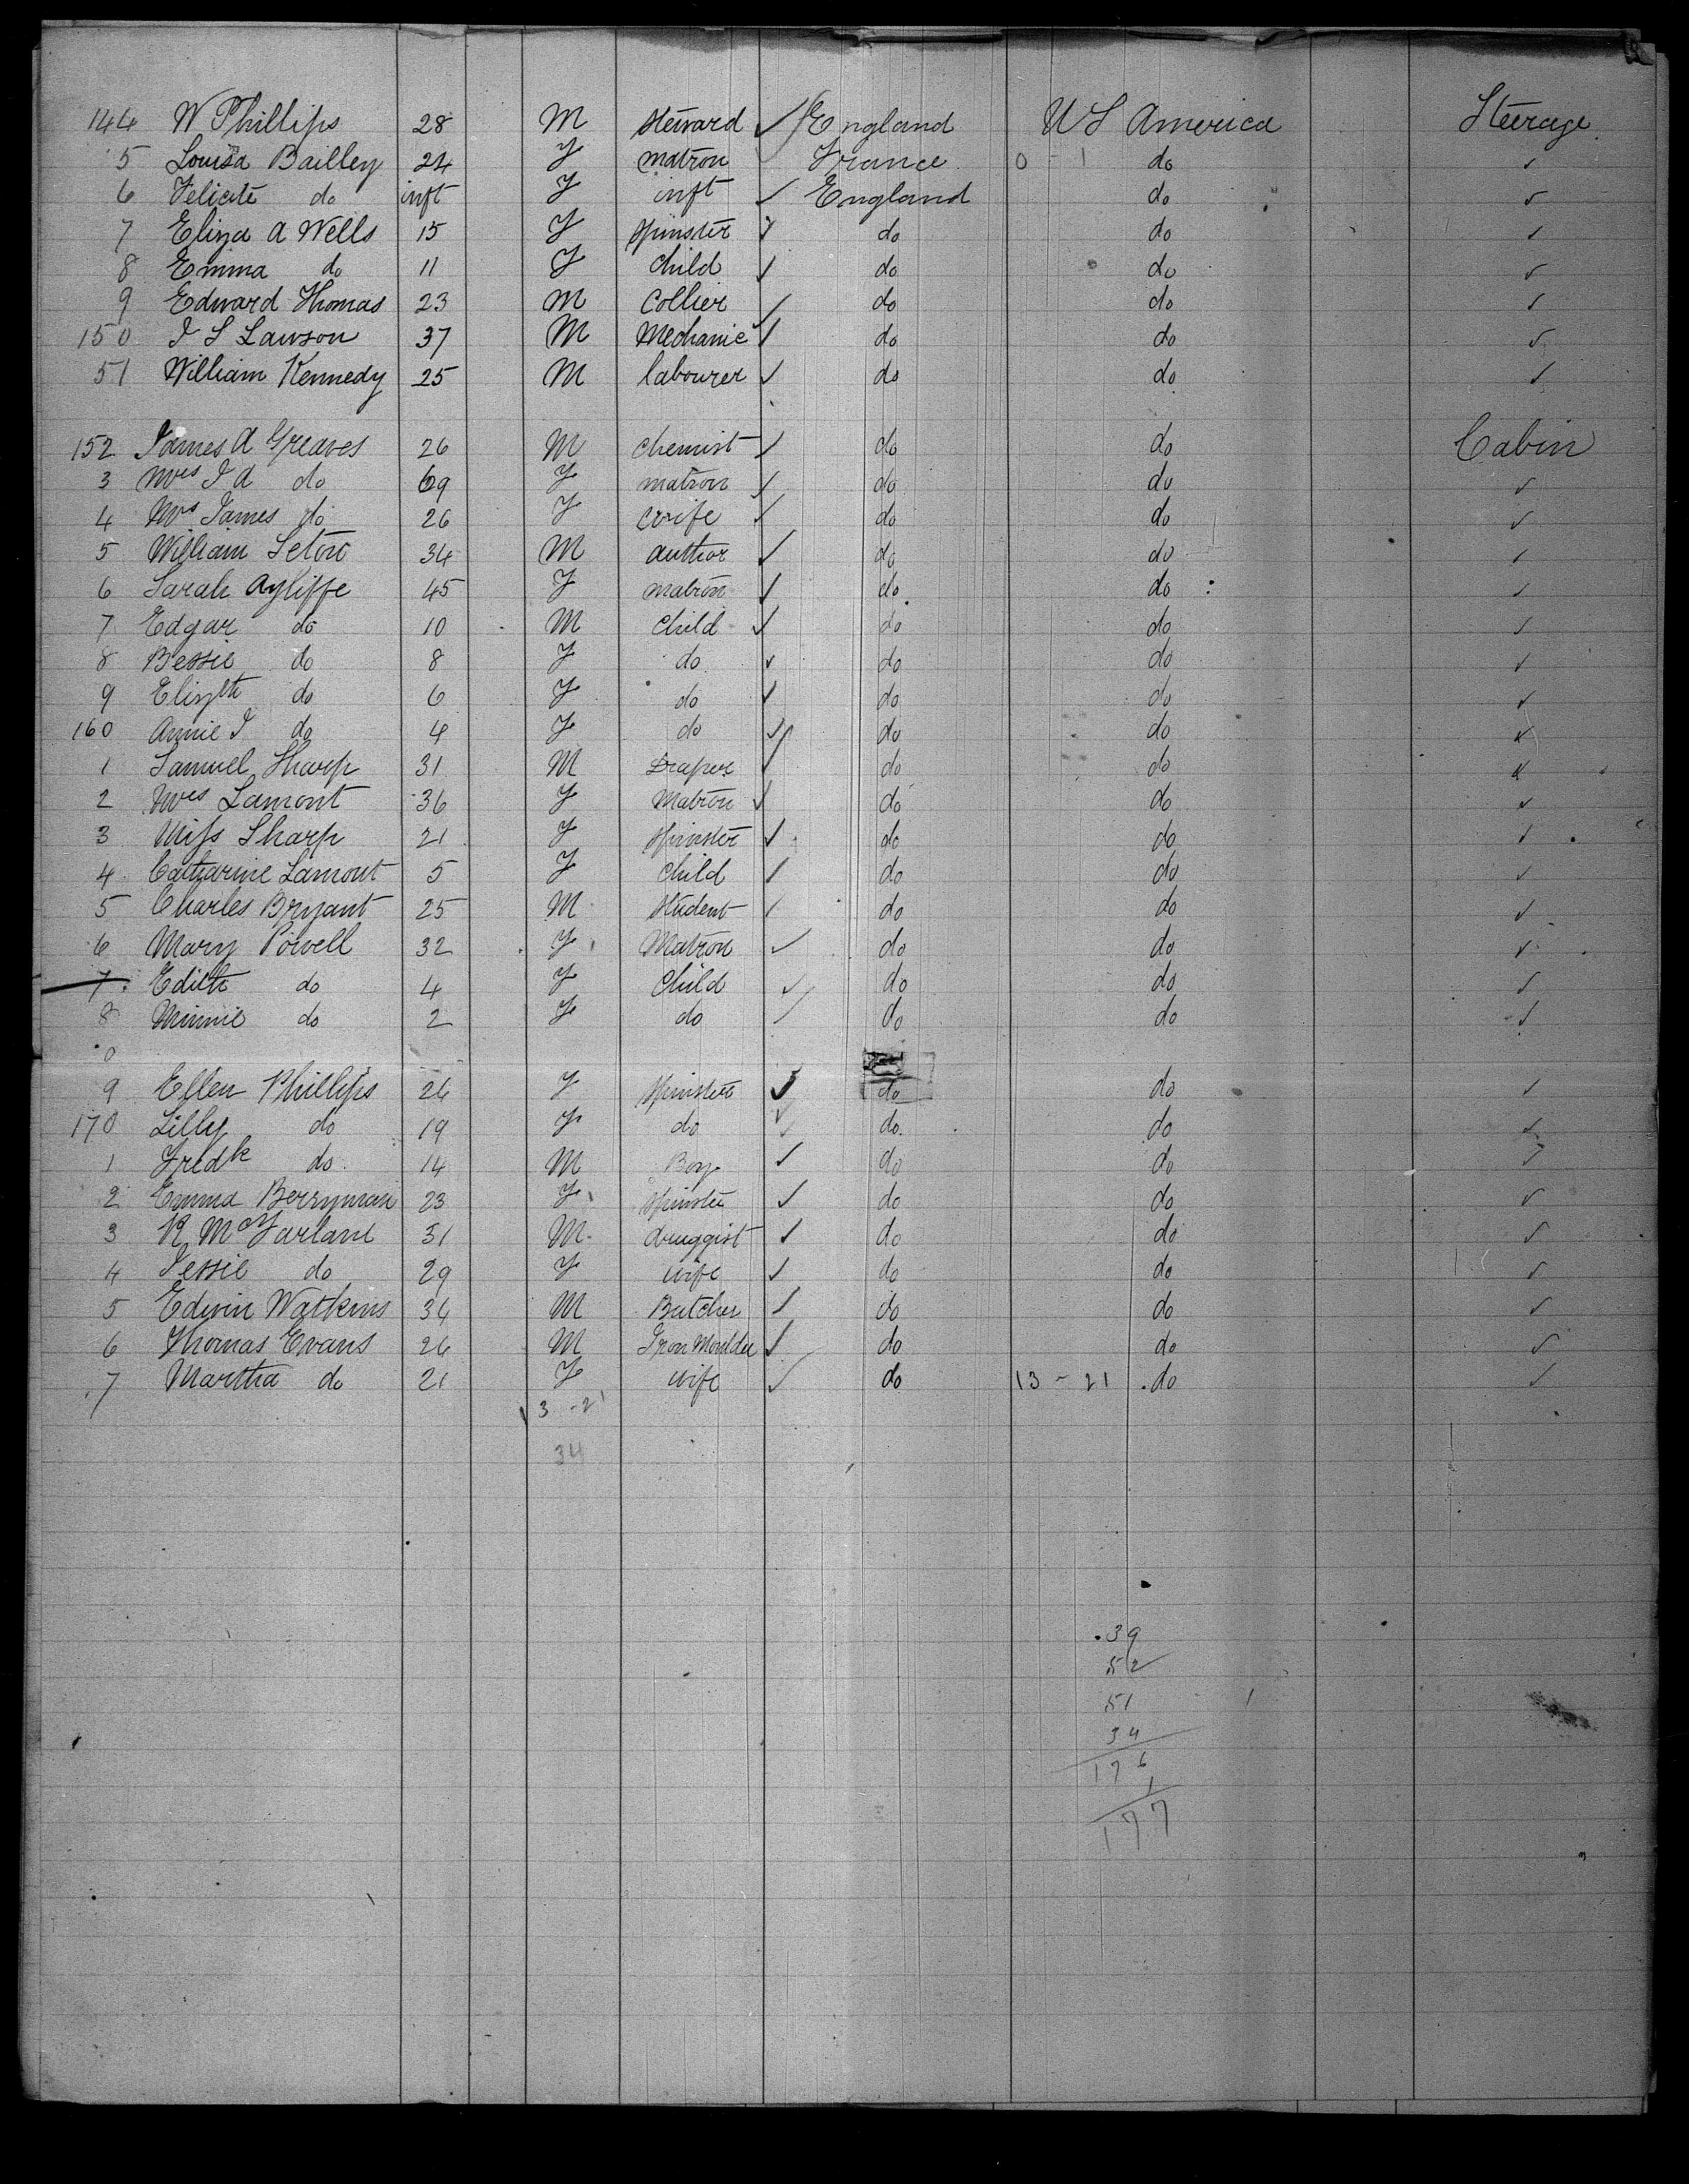 144 W Phillips 28 M Steward ✓ England US America Steerage
5 Louisa Bailley 24 F matron ✓ France 0 - 1 do ✓
6 Felicité do inft F inft ✓ England do ✓
7 Eliza A Wells 15 F Spinster ✓ do do ✓
8 Emma do 11 F Child ✓ do do ✓
9 Edward Thomas 23 M Collier ✓ do do ✓
150 J S Lawson 37 M Mechanic ✓ do do ✓
51 William Kennedy 25 M labourer ✓ do do ✓
152 James A Greaves 26 M Chemist ✓ do do Cabin
3 Mrs J A do 69 F matron ✓ do do ✓
4 Mrs James do 26 F wife ✓ do do ✓
5 William Seton 34 M author ✓ do do ✓
6 Sarah Ayliffe 45 F matron ✓ do do ✓
7 Edgar do 10 M Child ✓ do do ✓
8 Bessie do 8 F do ✓ do do ✓
9 Elizth do 6 F do ✓ do do ✓
160 Annie J do 4 F do ✓ do do ✓
1 Samuel Sharp 31 M Draper ✓ do do ✓
2 Mrs Lamont 36 F Matron ✓ do do ✓
3 Miss Sharp 21 F Spinster ✓ do do ✓
4 Catharine Lamont 5 F Child ✓ do do ✓
5 Charles Bryant 25 M Student ✓ do do ✓
6 Mary Powell 32 F Matron ✓ do do ✓
7 Edith do 4 F Child ✓ do do ✓
8 Minnie do 2 F do ✓ do do ✓
9 Ellen Phillips 26 F Spinster ✓ do do ✓
170 Lilly do 19 F do ✓ do do ✓
1 Fredk do 14 M Boy ✓ do do ✓
2 Emma Berryman 23 F Spinster ✓ do do ✓
3 R McFarland 31 M druggist ✓ do do ✓
4 Jessie do 29 F wife ✓ do do ✓
5 Edwin Watkins 34 M Butcher ✓ do do ✓
6 Thomas Evans 26 M Iron Moulder ✓ do do ✓
7 Martha do 21 F wife ✓ do 13 - 21 do ✓
13 - 21
34
39
52
51
34
176
1
177